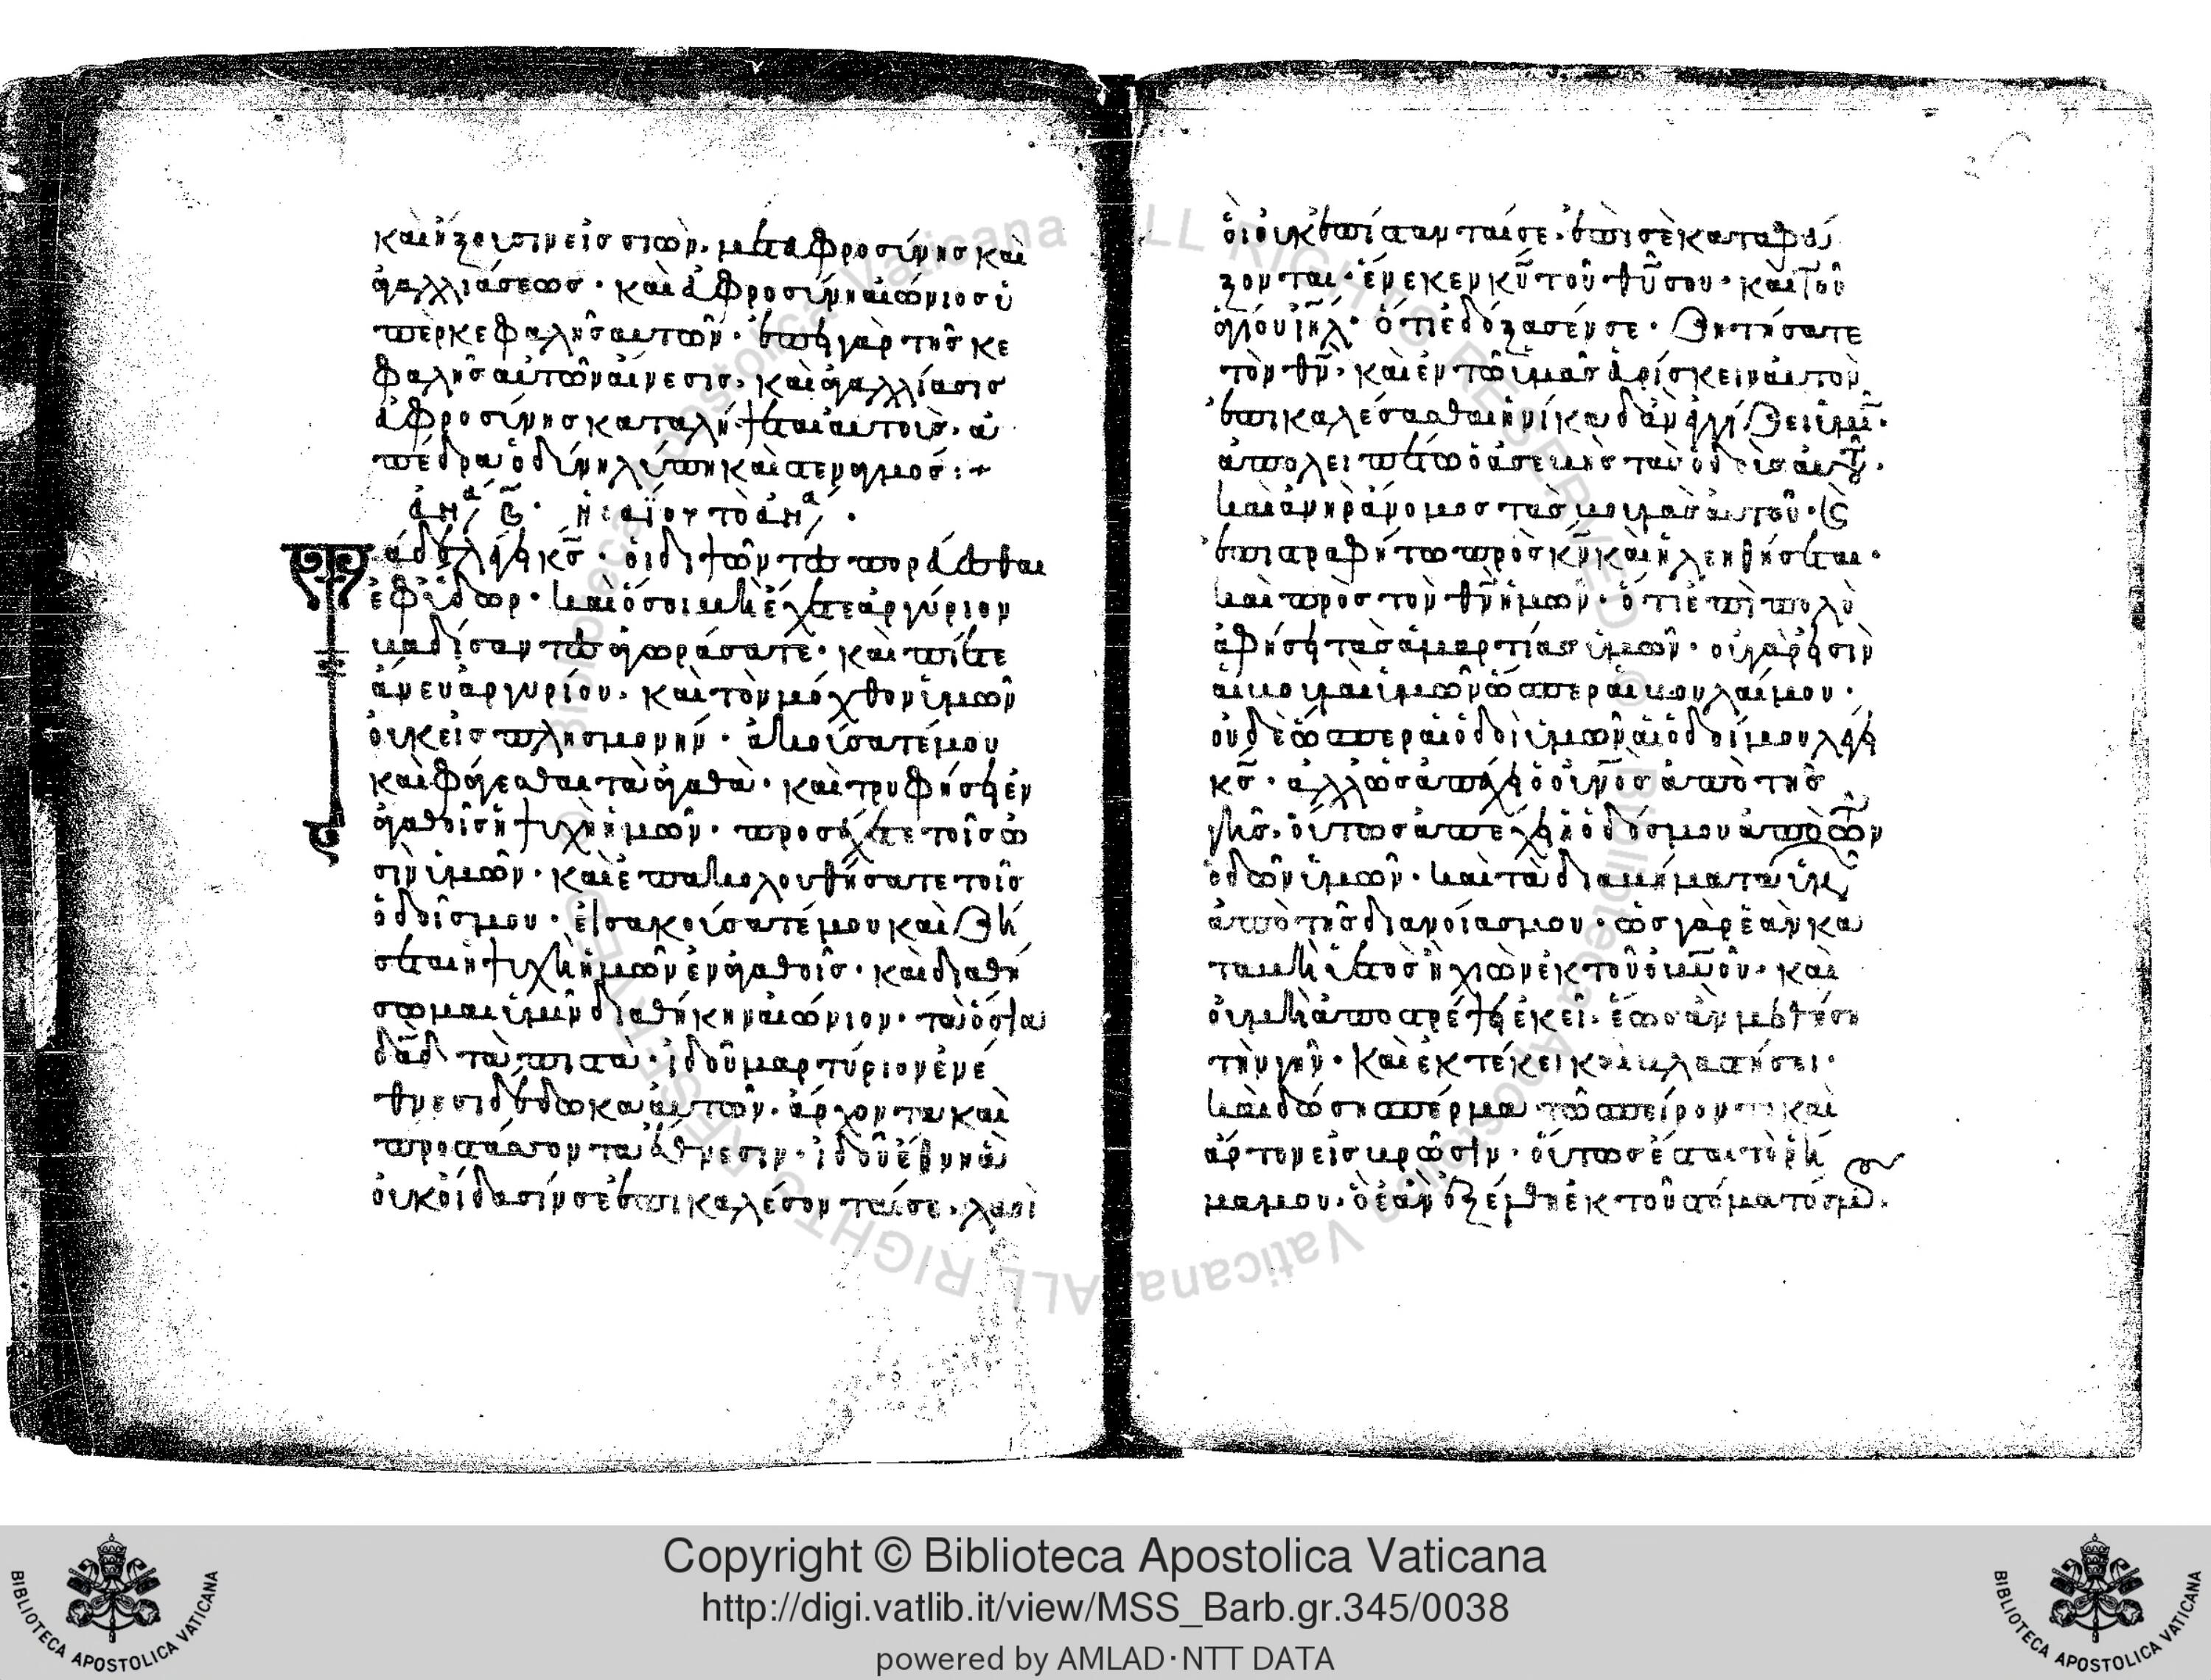 καὶ ἥξουσιν εἰς σιὼν. μετ' εὐφροσύνης καὶ
ἀγαλλιάσεως· καὶ εὐφροσύνη αἰώνιος ὑ
πὲρ κεφαλῆς αὐτῶν· ἐπὶ γὰρ τῆς κε
φαλῆς αὐτῶν αἴνεσις. καὶ ἀγαλλίασις
εὐφροσύνης καταλήψεται αὐτοὺς. ἀ
πέδρα ὀδύνη λύπη καὶ στεναγμός:+
ἀν B. ἡσαΐου τὸ ἀνα.
Τάδε λέγει κς· οἱ διψῶντες πορεύεσθαι
ἐφ' ὕδωρ· καὶ ὅσοι μὴ ἔχετε ἀργύριον
βαδίσαντες ἀγωράσατε· καὶ πίετε
ἄνευ ἀργυρίου. καὶ τὸν μόχθον ὑμῶν
οὐκ εἰς πλησμονήν· ἀκούσατέ μου
καὶ φάγεσθαι τὰ ἀγαθὰ· καὶ τρυφήσει ἐν
ἀγαθοῖς ἡ ψυχὴ ἡμῶν· προσέχετε τοῖς ὠ
σὶν ὑμῶν· καὶ ἐπακολουθήσατε τοῖς
ὁδοῖς μου· εἰσακούσατέ μου καὶ ζή
σεται ἡ ψυχὴ ἡμῶν ἐν ἀγαθοῖς· καὶ διαθή
σωμαι ὑμῖν διαθήκην αἰώνιον· τὰ ὅσια
δαδ τὰ πιστὰ· ἰδοῦ μαρτύριον ἐν ἔ
θνεσι δέδωκα αὐτῶν. ἄρχοντα καὶ
προστάσσοντα ἔθνεσιν· ἰδοῦ ἔθνη ἃ
οὐκ οἴδασίν σε ἐπικαλέσονταί σε. λαοὶ
ὃι οὐκ ἐπίστανταί σε. ἐπὶ σὲ καταφεύ
ξονται· ἕνεκεν κυ τοῦ θυ σου· καὶ τοῦ
ἁγίου ιηλ· ὅτι ἐδόξασέν σε· Ζητήσατε
τὸν θν· καὶ ἐν τῶ ὑμᾶς εὑρίσκειν αὐτὸν
ἐπικαλέσασθαι ἡνίκα δ' ἂν ἐγγίζει ὑμῖν·
ἀπολειπέτω ὁ ἀσεβὴς τὰς ὁδοὺς αὐτοῦ.
καὶ ἀνὴρ ἄνομος τὰς βουλὰς αὐτοῦ· καὶ
ἐπιστραφήτω πρὸς κν καὶ ἠλεηθήσεται·
καὶ πρὸς τὸν θν ἡμῶν· ὅτι ἐπὶ πολὺ
ἀφήσει τὰς ἁμαρτίας ὑμῶν· οὐ γάρ εἰσὶν
αἱ βουλαὶ ὑμῶν ὥσπερ αἱ βουλαί μου·
οὐδὲ ὥσπερ αἱ ὁδοὶ ὑμῶν αἱ ὁδοί μου λέγει
κς· ἀλλ' ὡς ἀπέχει ὁ οὐνος ἀπὸ τῆς
γῆς. οὕτως ἀπέχει ἡ ὁδός μου ἀπὸ τῶν
ὁδῶν ὑμῶν· καὶ τὰ διανοήματα ὑμῶν
ἀπὸ τῆς διανοίας μου· ὡς γὰρ ἐὰν κα
ταβῆ ὑετὸς ἢ χιὼν ἐκ τοῦ οὐνου· καὶ
οὐ μὴ ἀποστρέψει ἐκεῖ. ἕως ἂν μεθήση
τὴν γῆν· καὶ ἐκτέκει καὶ βλαστήσει·
καὶ δώση σπέρμα τῶ σπείροντι καὶ
ἄρτον εἰς βρῶσιν· οὕτως ἔσται τὸ ῥῆ
μα μου. ὃ ἐὰν ἐξέλθη ἐκ τοῦ στόματός μου.
Copyright © Biblioteca Apostolica Vaticana
http://digi.vatlib.it/view/MSS_Barb.gr.345/0038
powered by AMLAD·NTT DATA
BIBLIOTECA APOSTOLICA VATICANA
BIBLIOTECA APOSTOLICA VATICANA